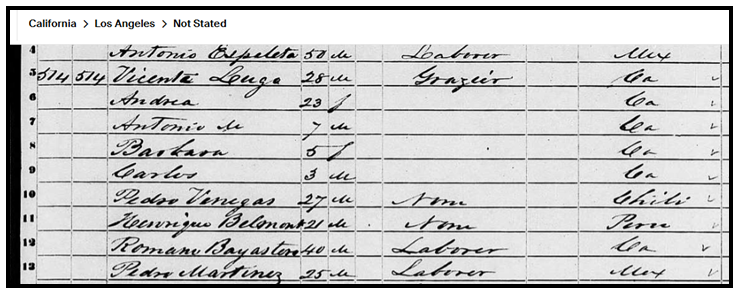 California > Los Angeles > Not Stated
4 Antonio Espeleta 50 M Laborer Mex
5 514 514 Vicenta Lugo 28 M Grazier Ca
6 Andrea 23 f Ca
7 Antonio M 7 M Ca
8 Barbara 5 f Ca
9 Carlos 3 M Ca
10 Pedro Venegas 27 M None Chili
11 Henrique Belmont 21 M None Peru
12 Romano 40 M Laborer Ca
13 Pedro Martinez 25 M Laborer Mex